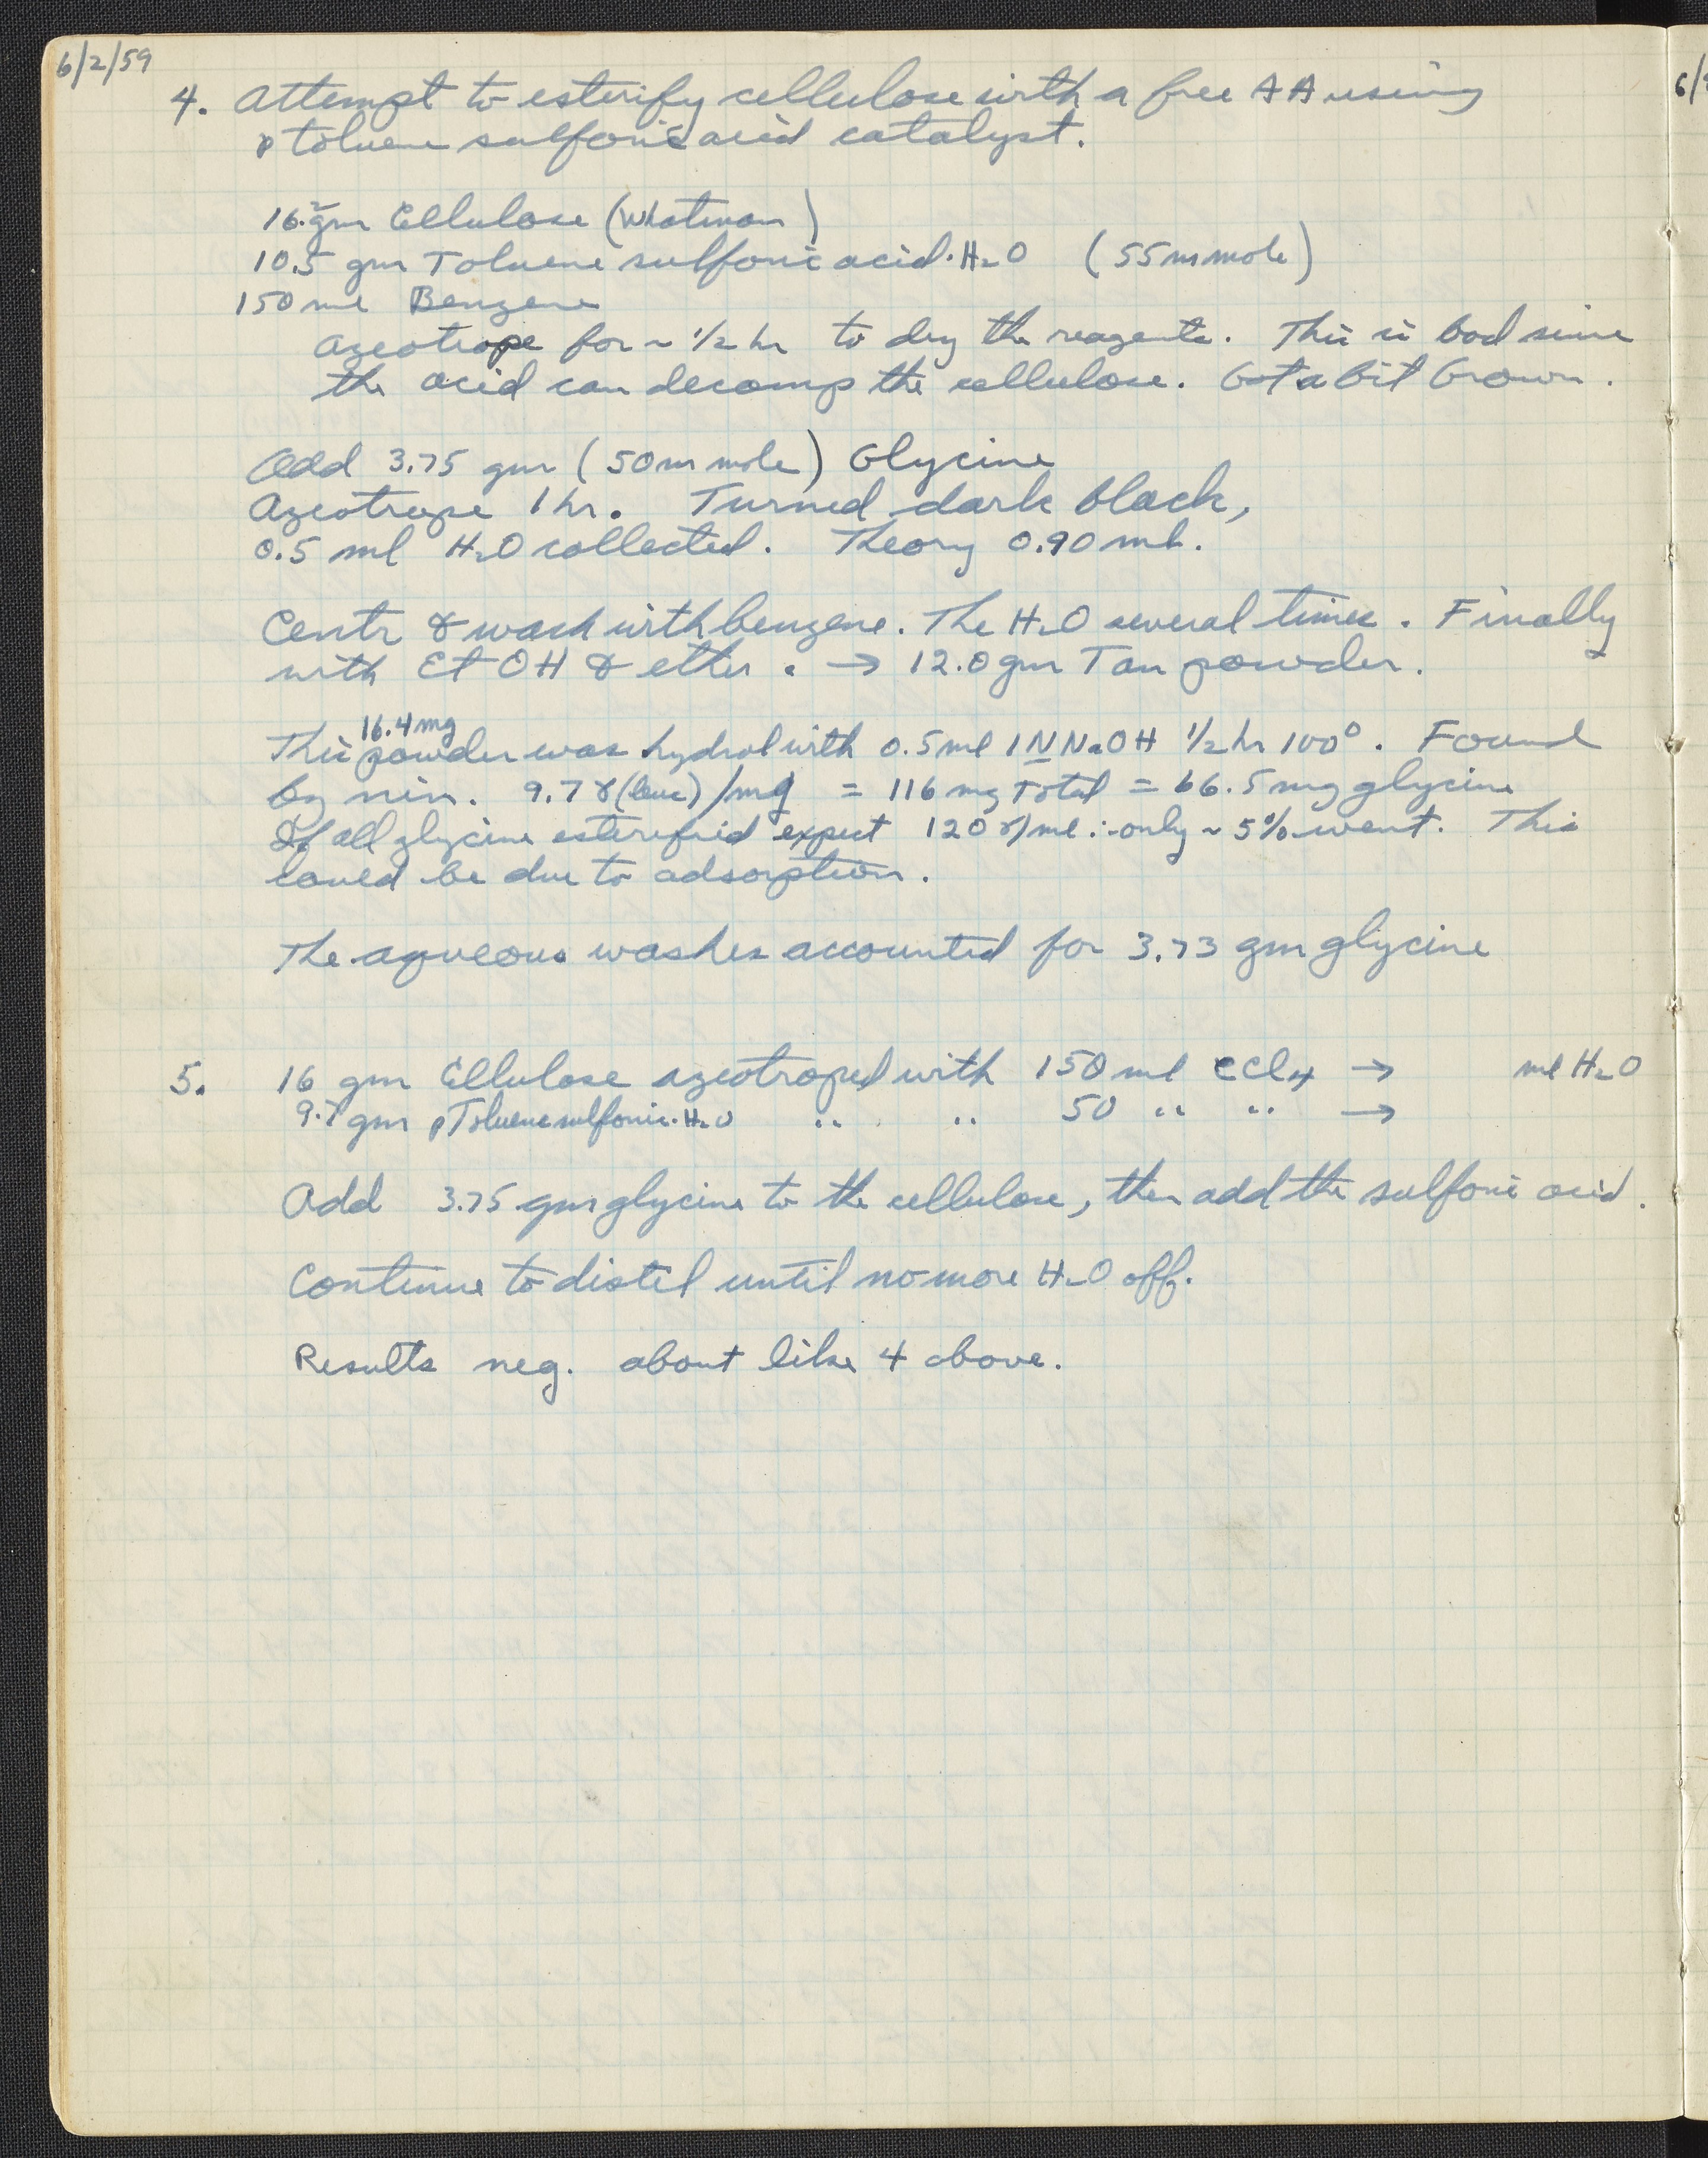 6/2/59
4. Attempt to esterify cellulose with a free AA using
p toluene sulfonic acid catalyst.
16.2 gm Cellulose (Whatman)
10.5 gm Toluene sulfonic acid·H2O (55 mmole)
150 ml Benzene
Azeotrope for ~ 1/2 hr to dry the reagents. This is bad since
the acid can decomp the cellulose. Got a bit brown.
Add 3.75 gm (50 m mole) Glycine
Azeotrope 1 hr. Turned dark black,
0.5 ml H2O collected. Theory 0.90 ml.
Centr & wash with benzene. The H2O several times. Finally
with EtOH & ether. → 12.0 gm Tan powder.
16.4 mg
This powder was hydrol with 0.5 ml 1N NaOH 1/2 hr 100°. Found
by nin. 9.7 γ(leuc)/mg = 116 mg Total = 66.5 mg glycine
If all glycine esterefied expect 120 γ/ml ∴ only ~ 5% went. This
could be due to adsorption.
The aqueous washes accounted for 3.73 gm glycine
6/
5. 16 gm Cellulose azeotroped with 150 ml CCl4 → ml H2O
9.7 gm pToluenesulfonic·H2O " " 50 " " →
Add 3.75 gm glycine to the cellulose, then add the sulfonic acid.
Continue to distil until no more H2O off.
Results neg. about like 4 above.